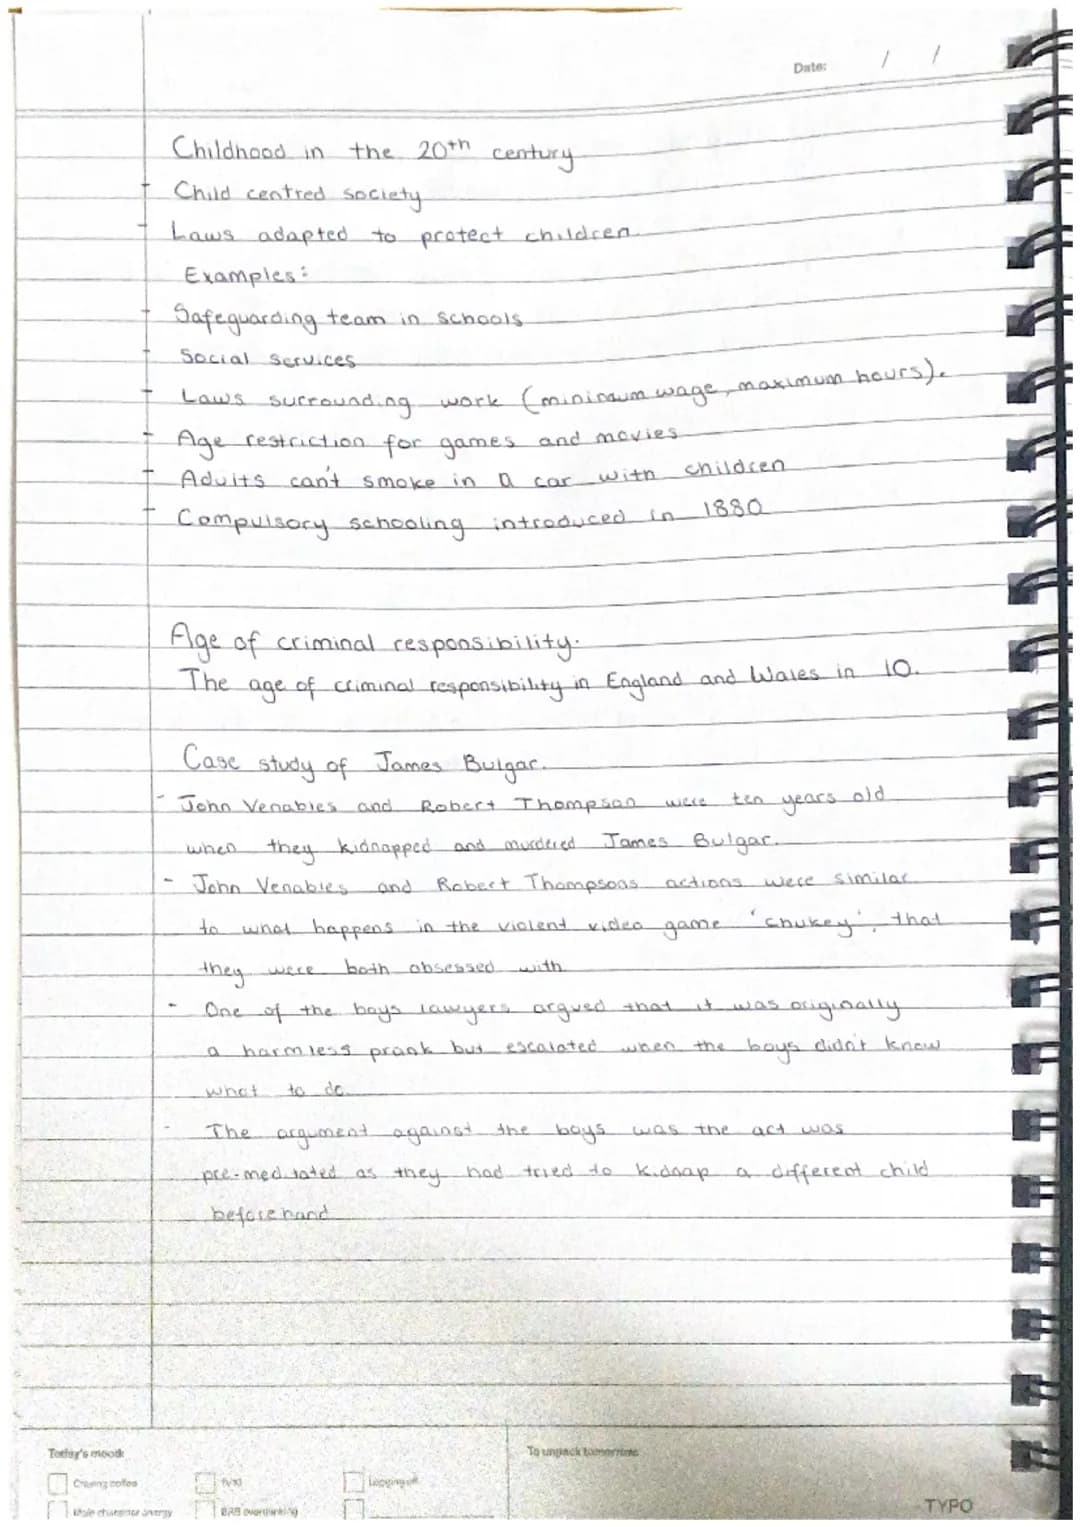 Date: / /
Childhood in the 20th century
- Child centred society
- Laws adapted to protect children.
Examples:
- Safeguarding team in schools
- Social services
- Laws surrounding work (minimum wage, maximum hours).
- Age restriction for games and movies
- Adults can't smoke in a car with children
- Compulsory schooling introduced in 1880
Age of criminal responsibility.
The age of criminal responsibility in England and Wales in 10.
Case study of James Bulgar.
- John Venables and Robert Thompson were ten years old
when they kidnapped and murdered James Bulgar.
- John Venables and Robert Thompsons actions were similar
to what happens in the violent video game 'chukey', that
they were both obsessed with
- One of the boys lawyers argued that it was originally
a harmless prank but escalated when the boys didn't know
what to do
- The argument against the boys was the act was
pre-meditated as they had tried to kidnap a different child
beforehand
Today's mood: To unpack tomorrow:
Craving coffee Logging off
Male character energy BRB overthinking
TYPO